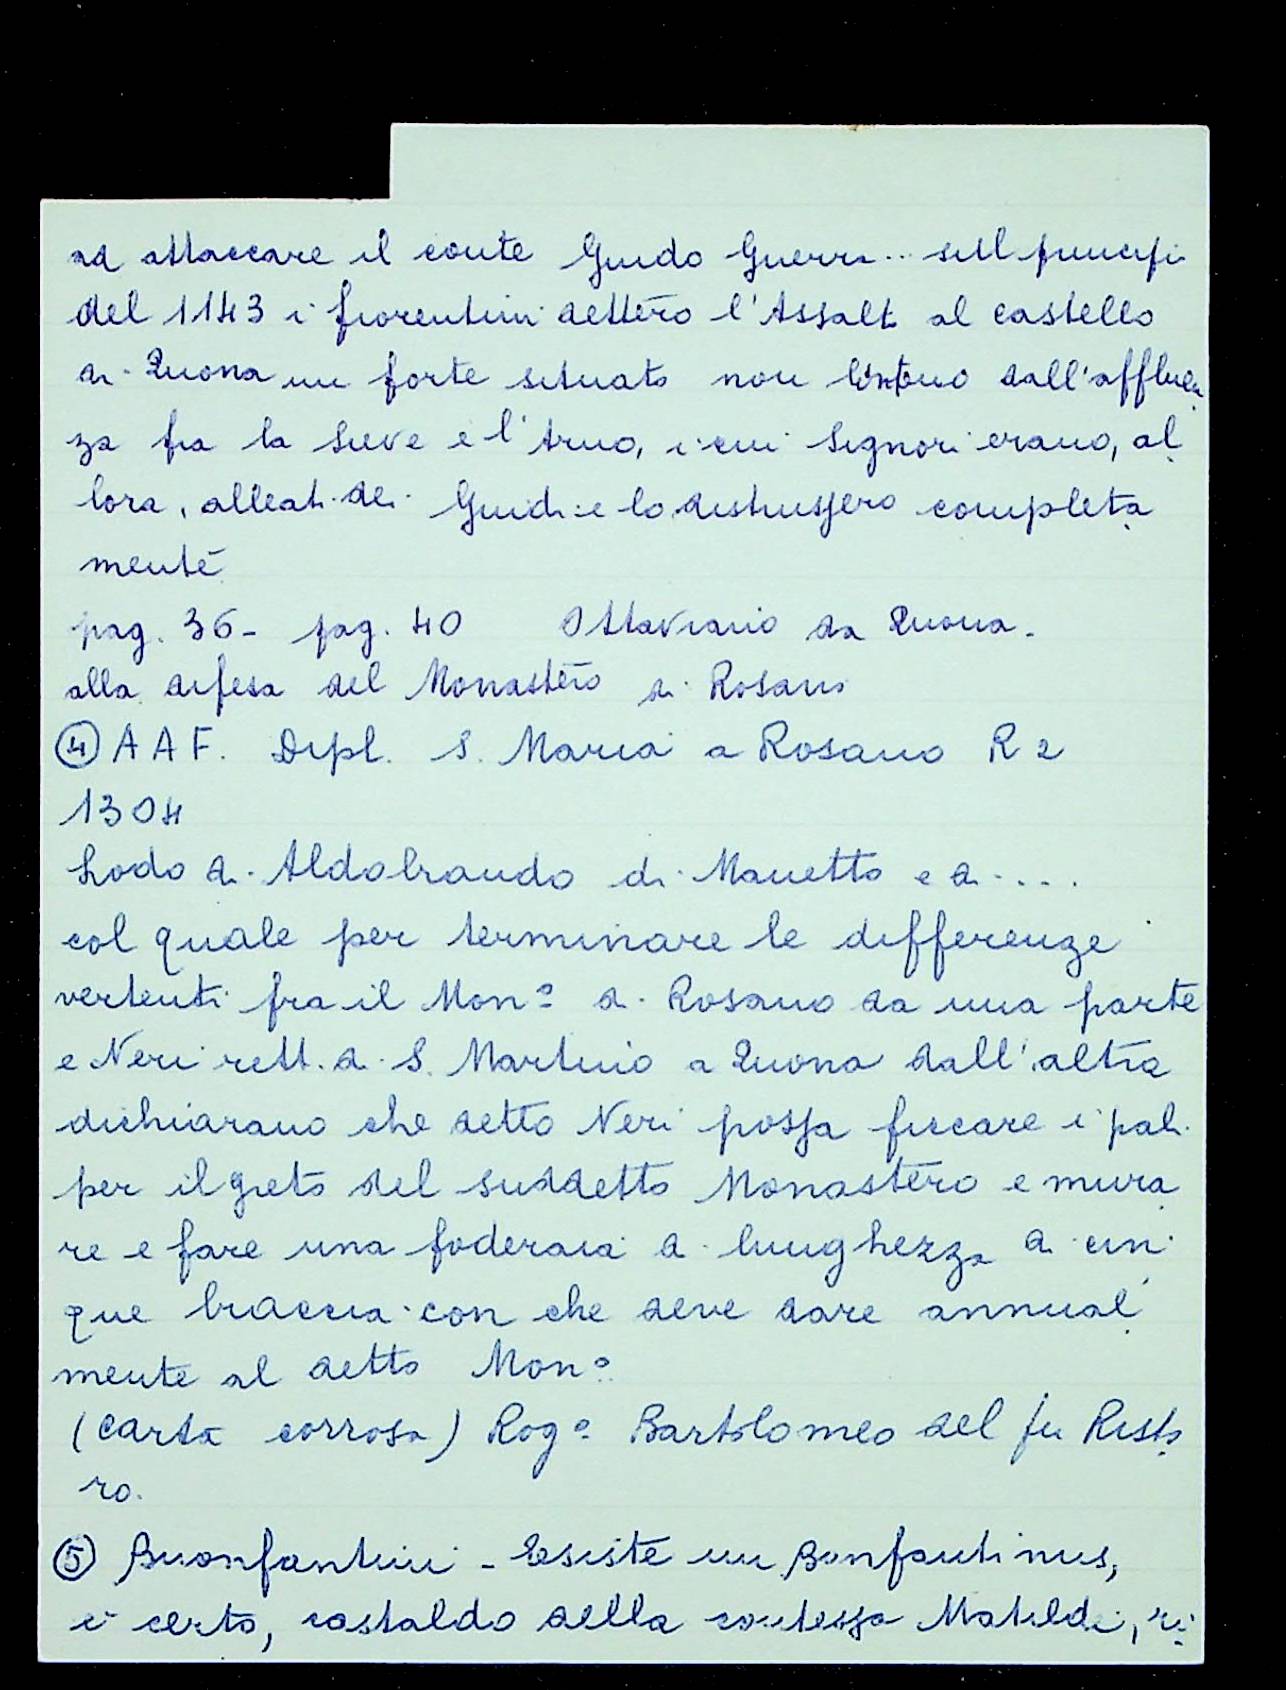 ad attaccare il conte Guido Guerra... sull principi
del 1143 i fiorentini dettero l'Assalt al castello
di Quona un forte situato non lontano dall'affluen
za fra la Sieve e l'Arno, i cui Signori erano, al
lora, alleati dei Guidi e lo distrussero completa
mente
pag. 36- pag. 40 Ottaviano da Quona.
alla difesa del Monastero di Rosano
④ A A F. Dipl. S. Maria a Rosano R 2
1304
Lodo di Aldobrando di Manetto e di ....
col quale per terminare le differenze
vertenti fra il Monº di Rosano da una parte
e Neri rett. di S. Martino a Quona dall'altra
dichiarano che detto Neri possa ficcare i pali
per il greto del suddetto Monastero e mura
re e fare una foderaia di lunghezza di cin
que braccia con che deve dare annual
mente al detto Monº
(carta corrosa) Rogº Bartolomeo del fu Risto
ro.
⑤ Buonfantini - Esiste un Bonfantinus,
è certo, castaldo della contessa Matilde, ri